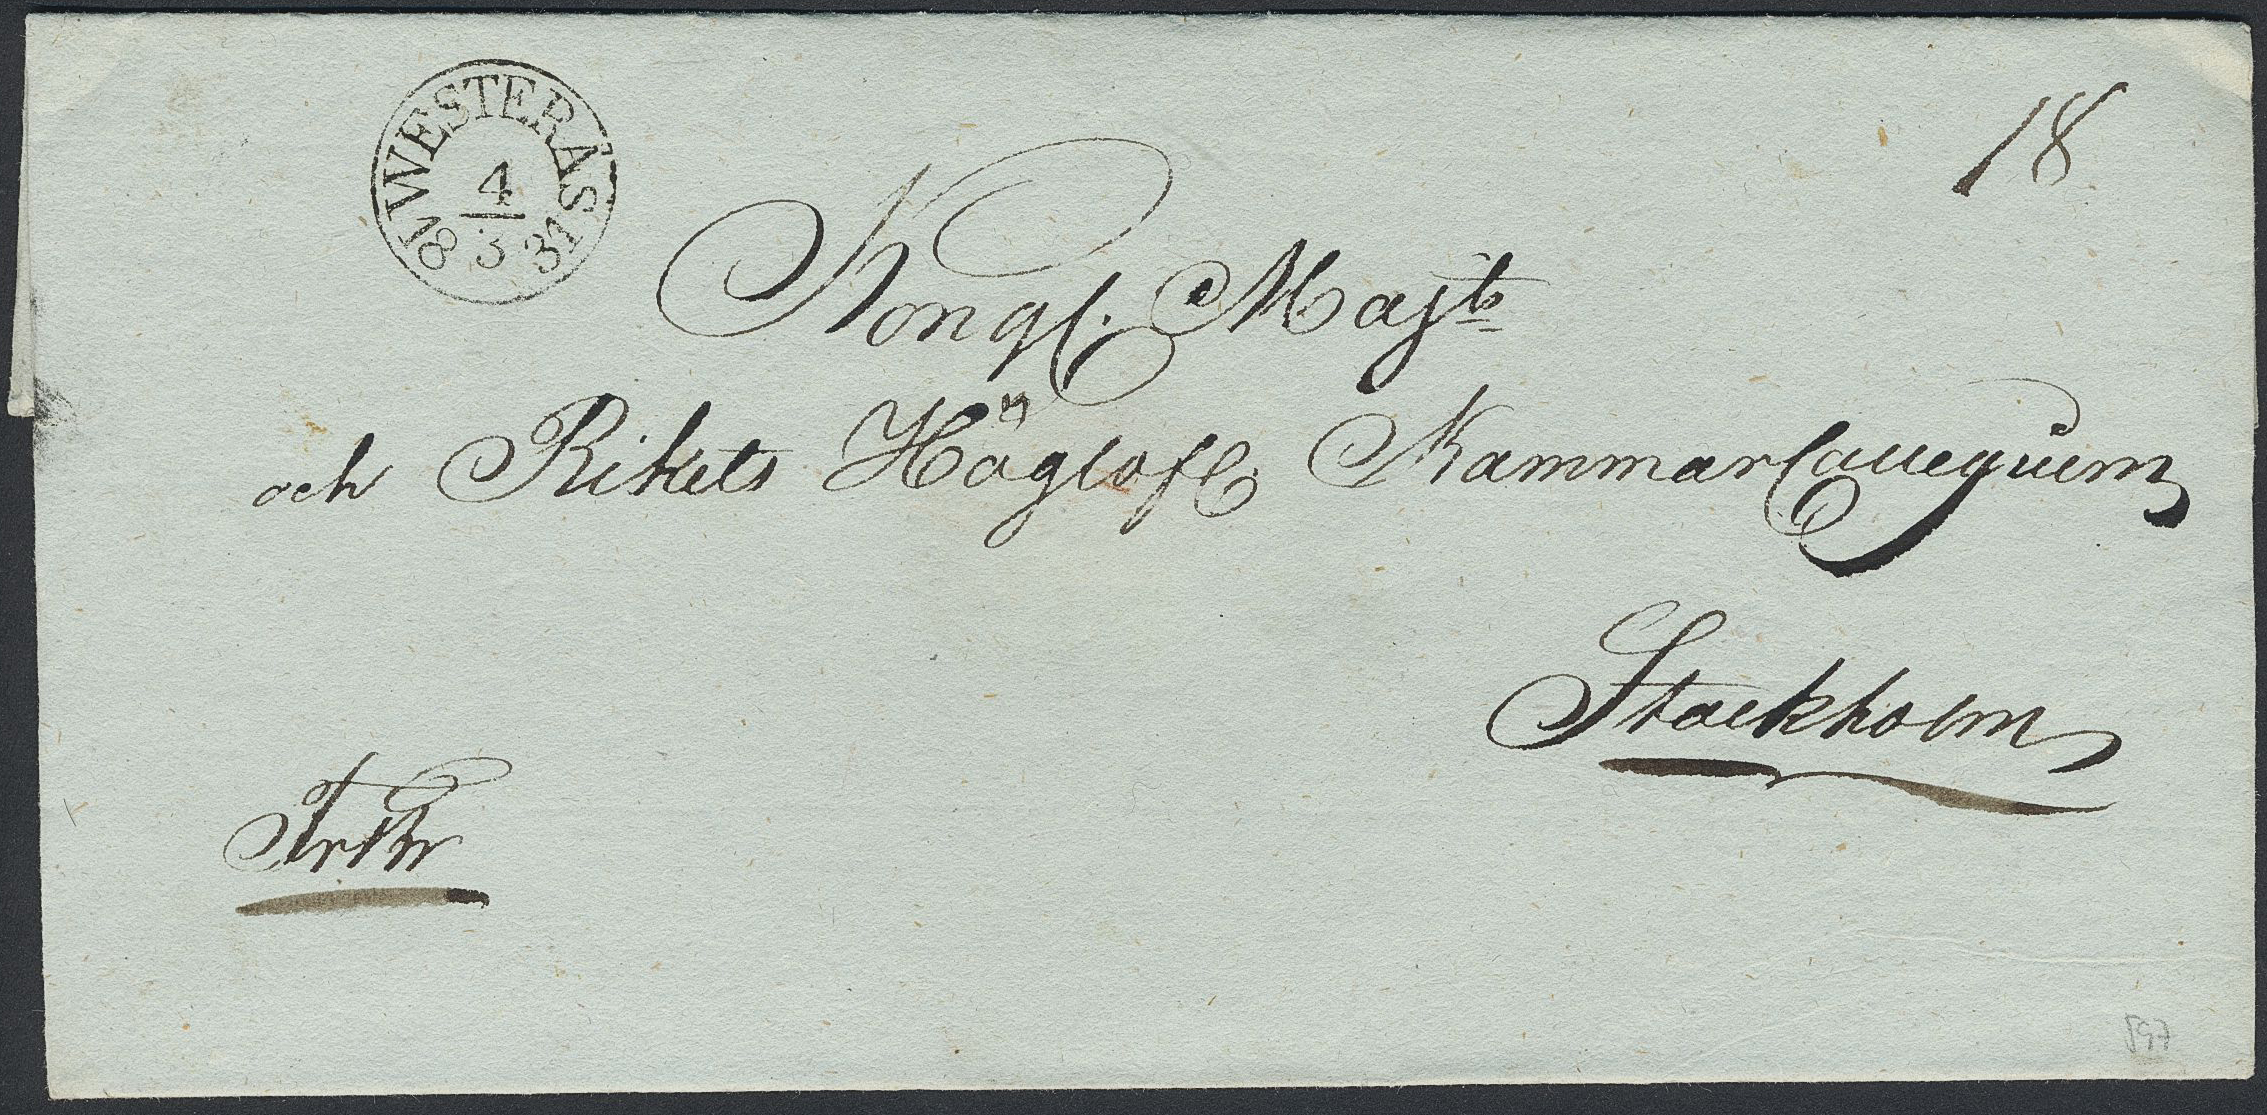 WESTERÅS
4
18 3 31
18
Kongl. Majts
och Rikets Höglofl. Kammar Collegium
Stockholm